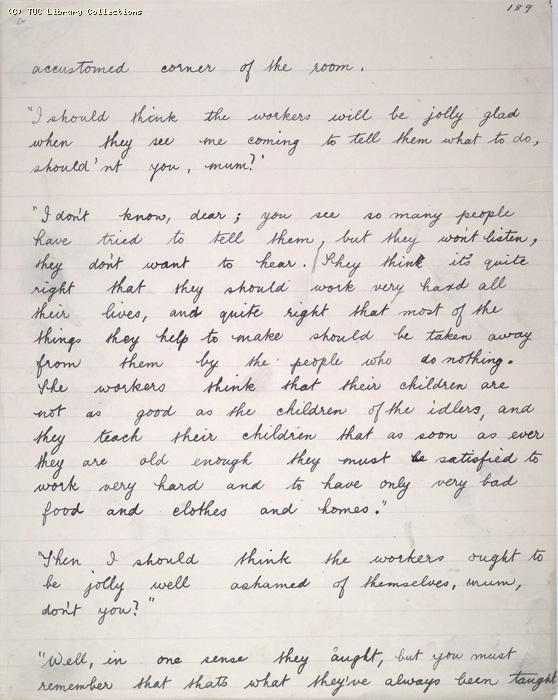 (C) TUC Library Collections
189
accustomed corner of the room.
"I should think the workers will be jolly glad
when they see me coming to tell them what to do,
should'nt you, mum?"
"I don't know, dear; you see so many people
have tried to tell them, but they won't listen,
they don't want to hear. They think it's quite
right that they should work very hard all
their lives, and quite right that most of the
things they help to make should be taken away
from them by the people who do nothing.
The workers think that their children are
not as good as the children of the idlers, and
they teach their children that as soon as ever
they are old enough they must be satisfied to
work very hard and to have only very bad
food and clothes and homes."
"Then I should think the workers ought to
be jolly well ashamed of themselves, mum,
don't you?"
"Well, in one sense they aught, but you must
remember that thats what they've always been taught